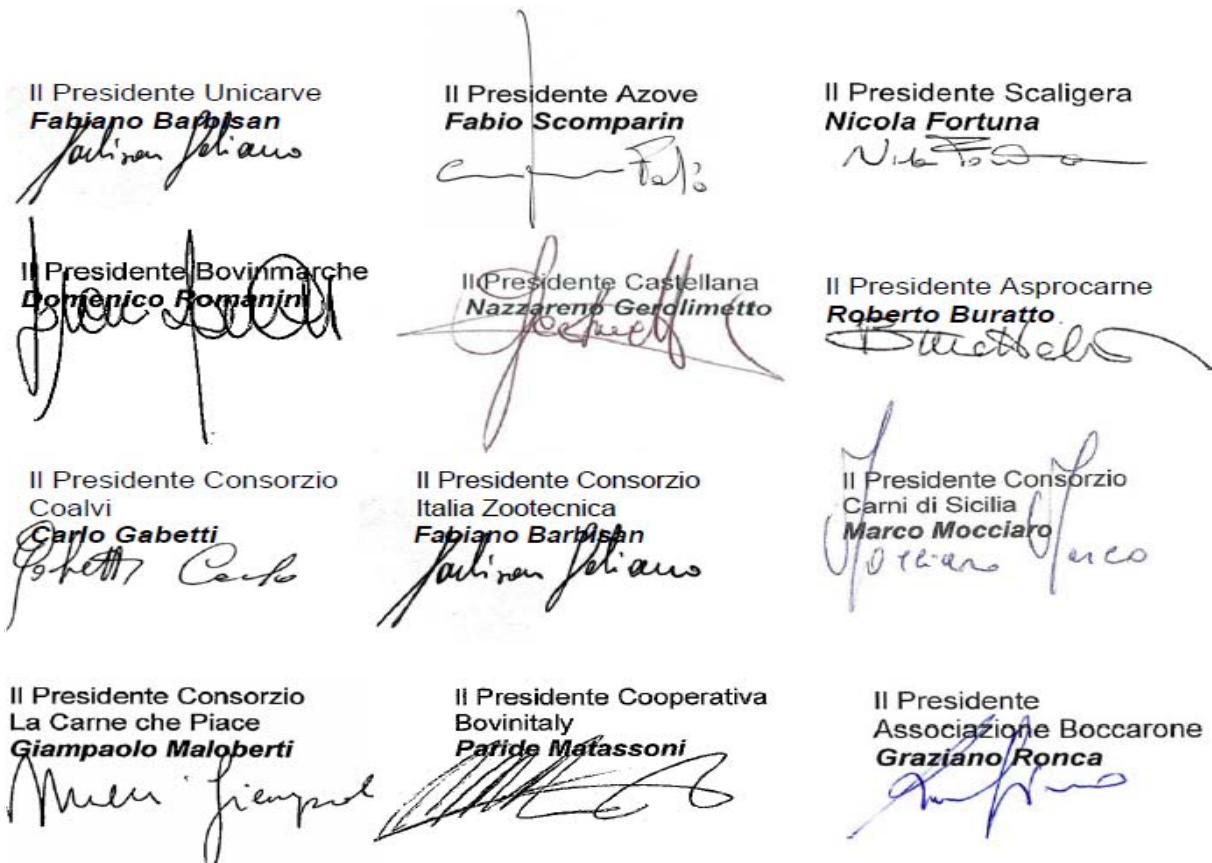 Il Presidente Unicarve
Fabiano Barbisan
Barbisan Fabiano
Il Presidente Azove
Fabio Scomparin
Fabio
Il Presidente Scaligera
Nicola Fortuna
Il Presidente Bovinmarche
Domenico Romanini
Il Presidente Castellana
Nazzareno Gerolimetto
Il Presidente Asprocarne
Roberto Buratto
Il Presidente Consorzio
Coalvi
Carlo Gabetti
Gabetti Carlo
Il Presidente Consorzio
Italia Zootecnica
Fabiano Barbisan
Barbisan Fabiano
Il Presidente Consorzio
Carni di Sicilia
Marco Mocciaro
Mocciaro Marco
Il Presidente Consorzio
La Carne che Piace
Giampaolo Maloberti
Il Presidente Cooperativa
Bovinitaly
Paride Matassoni
Il Presidente
Associazione Boccarone
Graziano Ronca